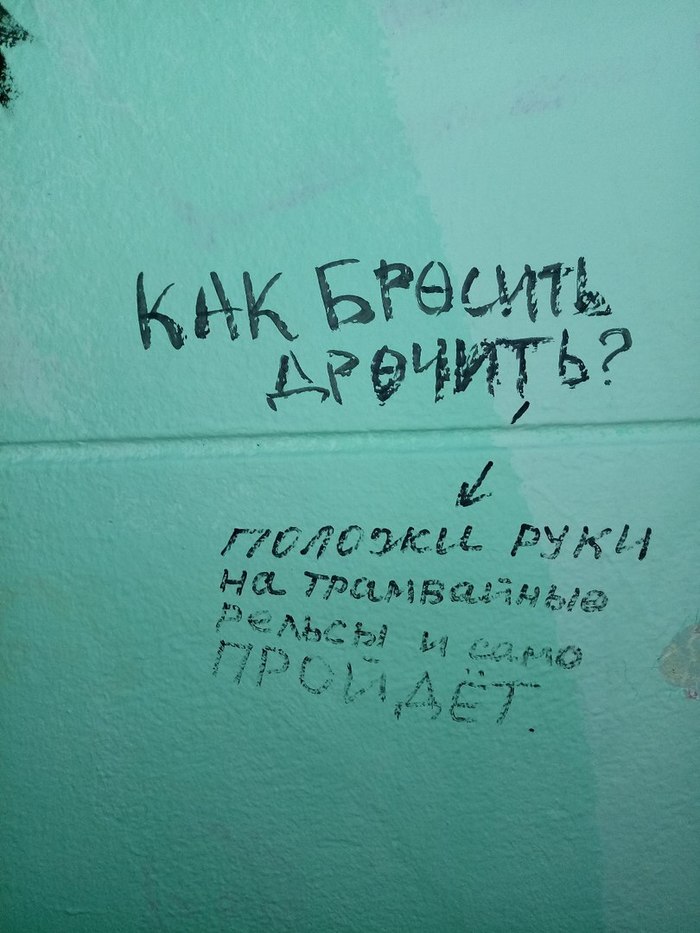 КАК БРОСИТЬ
ДРОЧИТЬ?
ПОЛОЖИ РУКИ
на трамвайные
рельсы и само
ПРОЙДЁТ.